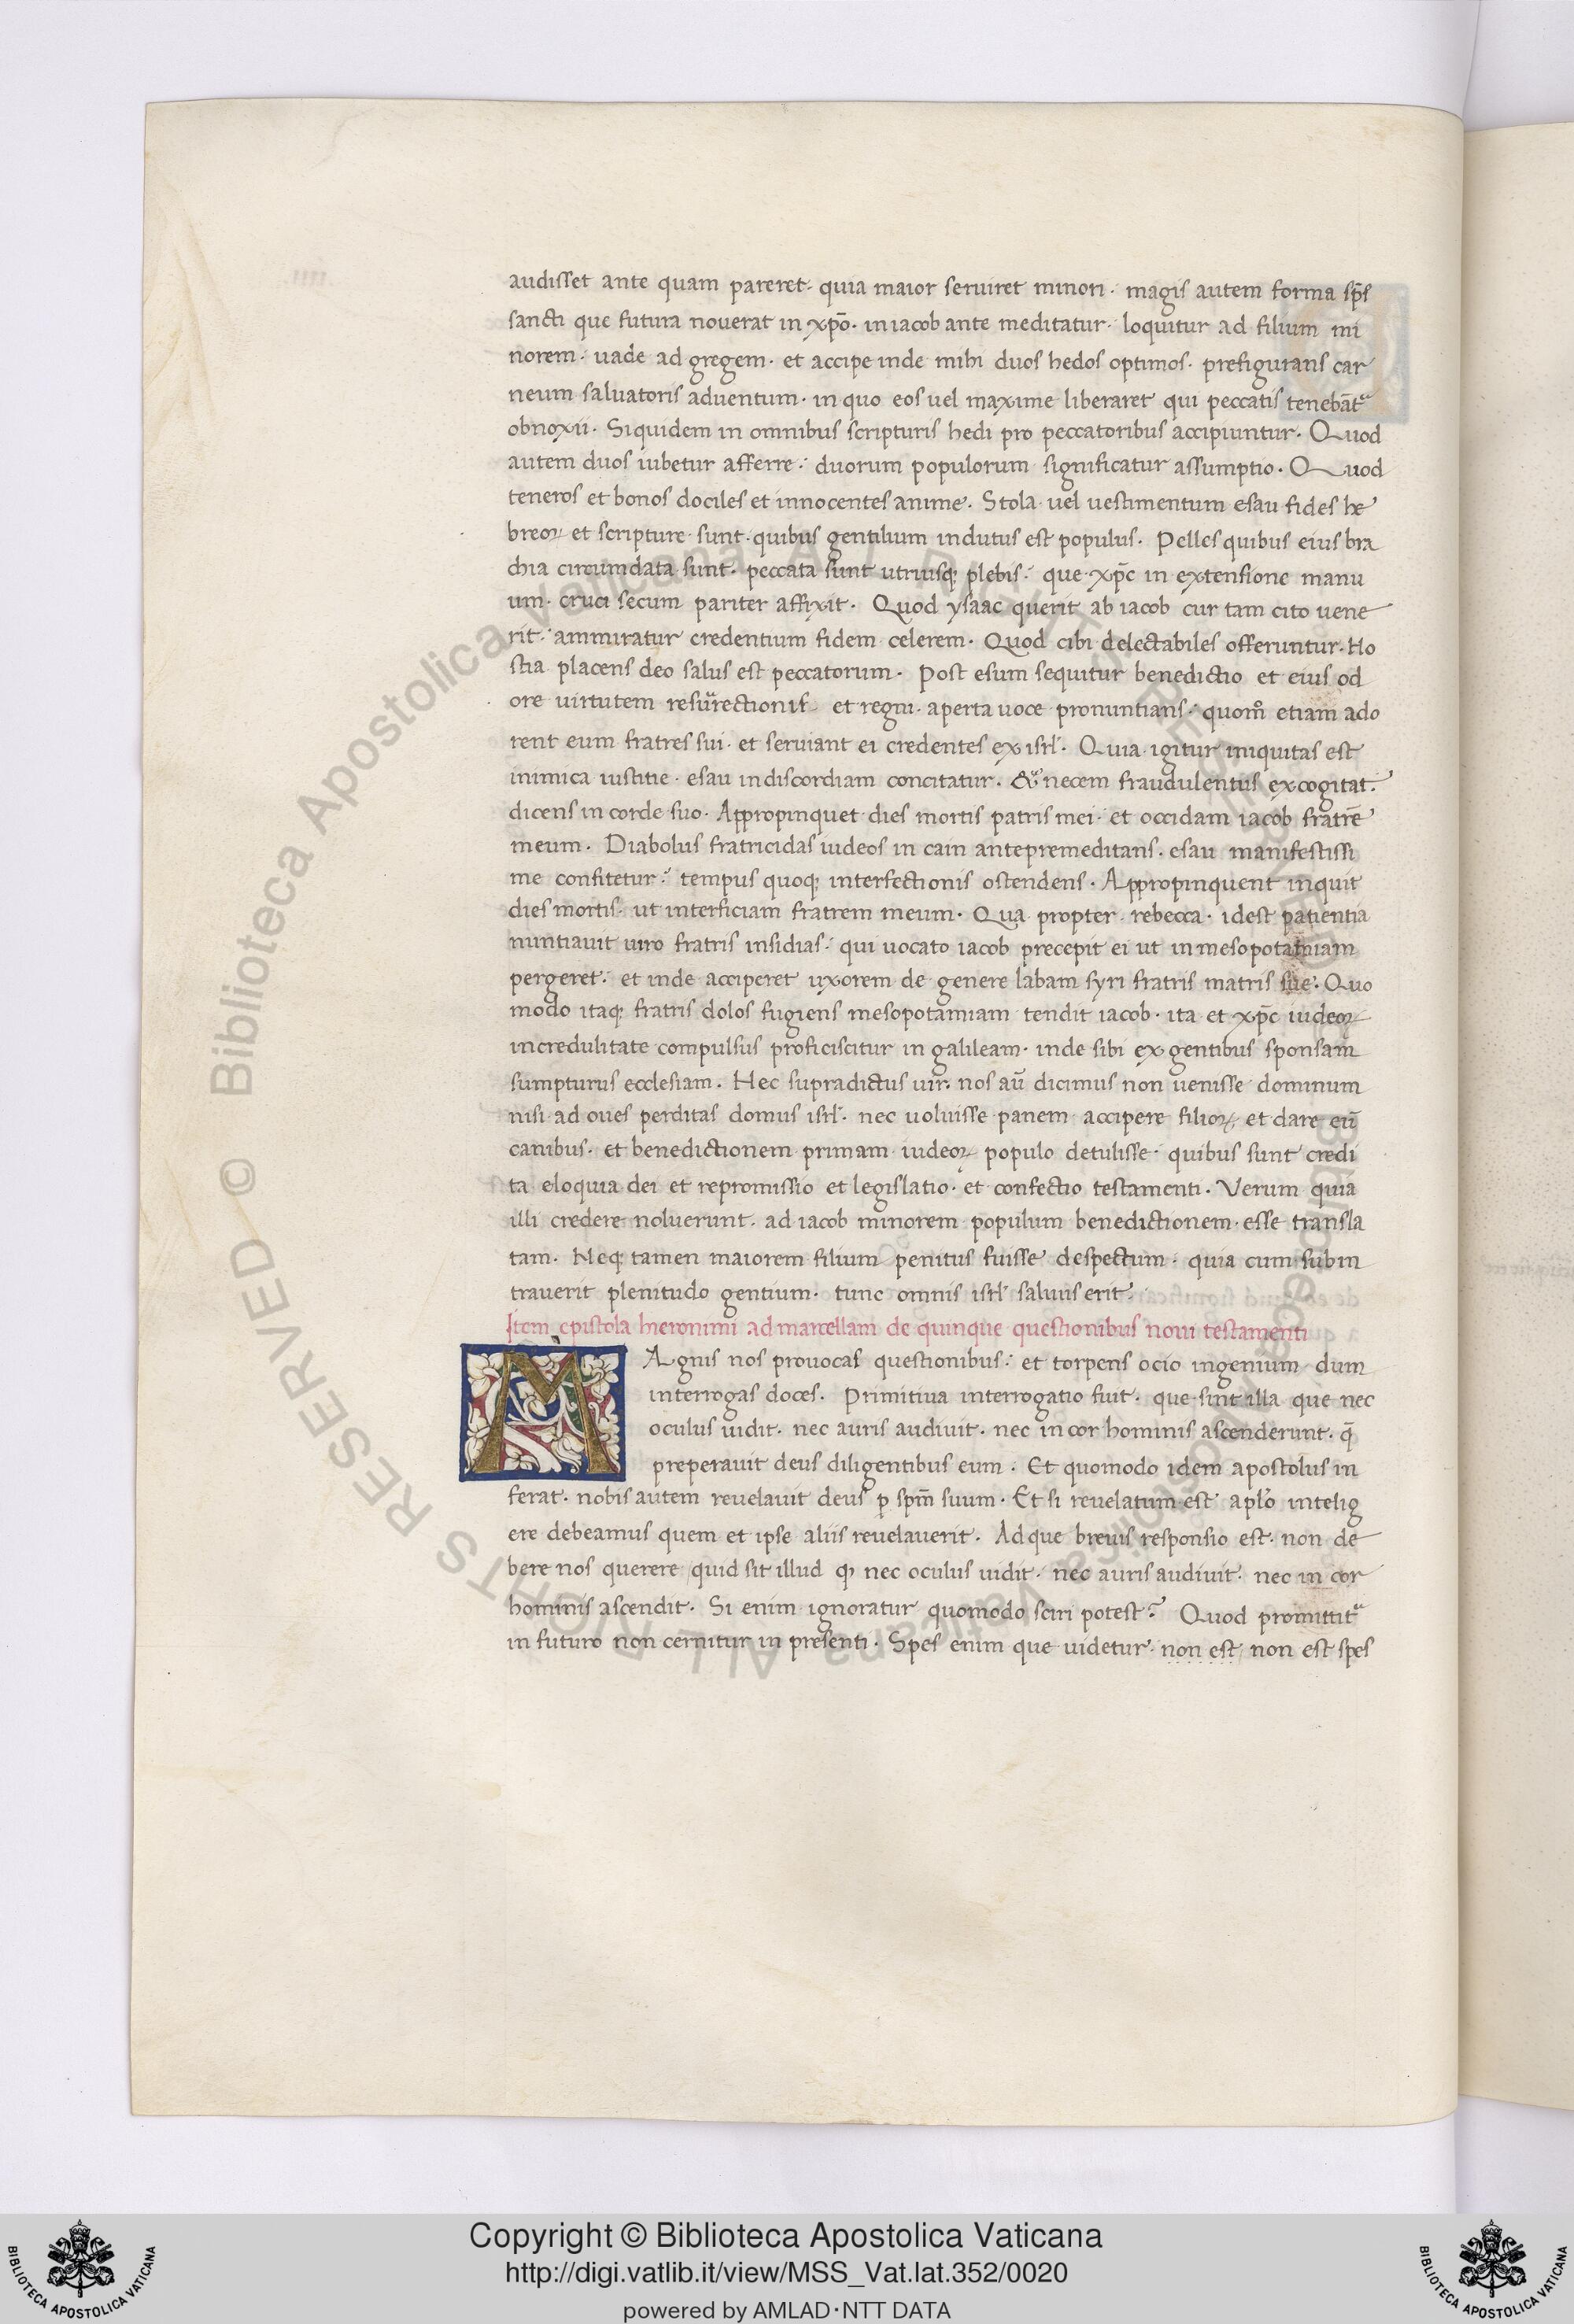 audisset ante quam pareret· quia maior seruiret minori· magis autem forma sp̄s
sancti que futura nouerat in xp̄o· in iacob ante meditatur· loquitur ad filium mi
norem· uade ad gregem· et accipe inde mihi duos hedos optimos· prefigurans car
neum saluatoris aduentum· in quo eos uel maxime liberaret qui peccatis tenebāt᷑
obnoxii· Siquidem in omnibus scripturis hedi pro peccatoribus accipiuntur· Quod
autem duos iubetur afferre: duorum populorum significatur assumptio· Quod
teneros et bonos dociles et innocentes anime· Stola uel uestimentum esau fides he
breoꝝ et scripture sunt· quibus gentilium indutus est populus· Pelles quibus eius bra
chia circumdata sunt· peccata sunt utriusq; plebis: que xp̄c in extensione manu
um· cruci secum pariter affixit· Quod ysaac querit ab iacob cur tam cito uene
rit: ammiratur credentium fidem celerem· Quod cibi delectabiles offeruntur· Ho
stia placens deo salus est peccatorum· Post esum sequitur benedictio et eius od
ore uirtutem resurrectionis et regni· aperta uoce pronuntians: quom̄ etiam ado
rent eum fratres sui· et seruiant ei credentes ex isrl̄· Quia igitur iniquitas est
inimica iustitie· esau in discordiam concitatur· & necem fraudulentus excogitat·
dicens in corde suo· Appropinquet dies mortis patris mei· et occidam iacob fratrē
meum· Diabolus fratricidas iudeos in cain antepremeditans· esau manifestissi
me confitetur: tempus quoq; interfectionis ostendens· Appropinquent inquit
dies mortis· ut interficiam fratrem meum· Qua propter rebecca· idest patientia
nuntiauit uiro fratris insidias: qui uocato iacob precepit ei ut in mesopotamiam
pergeret: et inde acciperet uxorem de genere labam syri fratris matris sue· Quo
modo itaq; fratris dolos fugiens mesopotamiam tendit iacob· ita et xp̄c iudeoꝝ
incredulitate compulsus proficiscitur in galileam· inde sibi ex gentibus sponsam
sumpturus ecclesiam· Hec supradictus uir· nos aū dicimus non uenisse dominum
nisi ad oues perditas domus isrl̄· nec uoluisse panem accipere filioꝝ et dare eū
canibus· et benedictionem primam iudeoꝝ populo detulisse· quibus sunt credi
ta eloquia dei et repromissio et legislatio· et confectio testamenti· Verum quia
illi credere noluerunt· ad iacob minorem populum benedictionem esse transla
tam· Neq; tamen maiorem filium penitus fuisse despectum· quia cum subin
trauerit plenitudo gentium· tunc omnis isrl̄ saluus erit·
Item epistola hieronimi ad marcellam de quinque questionibus noui testamenti
MAgnis nos prouocas questionibus: et torpens ocio ingenium dum
interrogas doces· Primitiua interrogatio fuit· que sint illa que nec
oculus uidit· nec auris audiuit· nec in cor hominis ascenderunt· q̄
preperauit deus diligentibus eum· Et quomodo idem apostolus in
ferat· nobis autem reuelauit deus ꝑ spm̄ suum· Et si reuelatum est apl̄o intelig
ere debeamus quem et ipse aliis reuelauerit· Ad que breuis responsio est· non de
bere nos querere quid sit illud ꝙ nec oculus uidit· nec auris audiuit· nec in cor
hominis ascendit· Si enim ignoratur quomodo sciri potest? Quod promittit᷑
in futuro non cernitur in presenti· Spes enim que uidetur· non est non est spes
Biblioteca Apostolica Vaticana ALL RIGHTS RESERVED ©
Copyright © Biblioteca Apostolica Vaticana
http://digi.vatlib.it/view/MSS_Vat.lat.352/0020
powered by AMLAD·NTT DATA
BIBLIOTECA APOSTOLICA VATICANA
BIBLIOTECA APOSTOLICA VATICANA